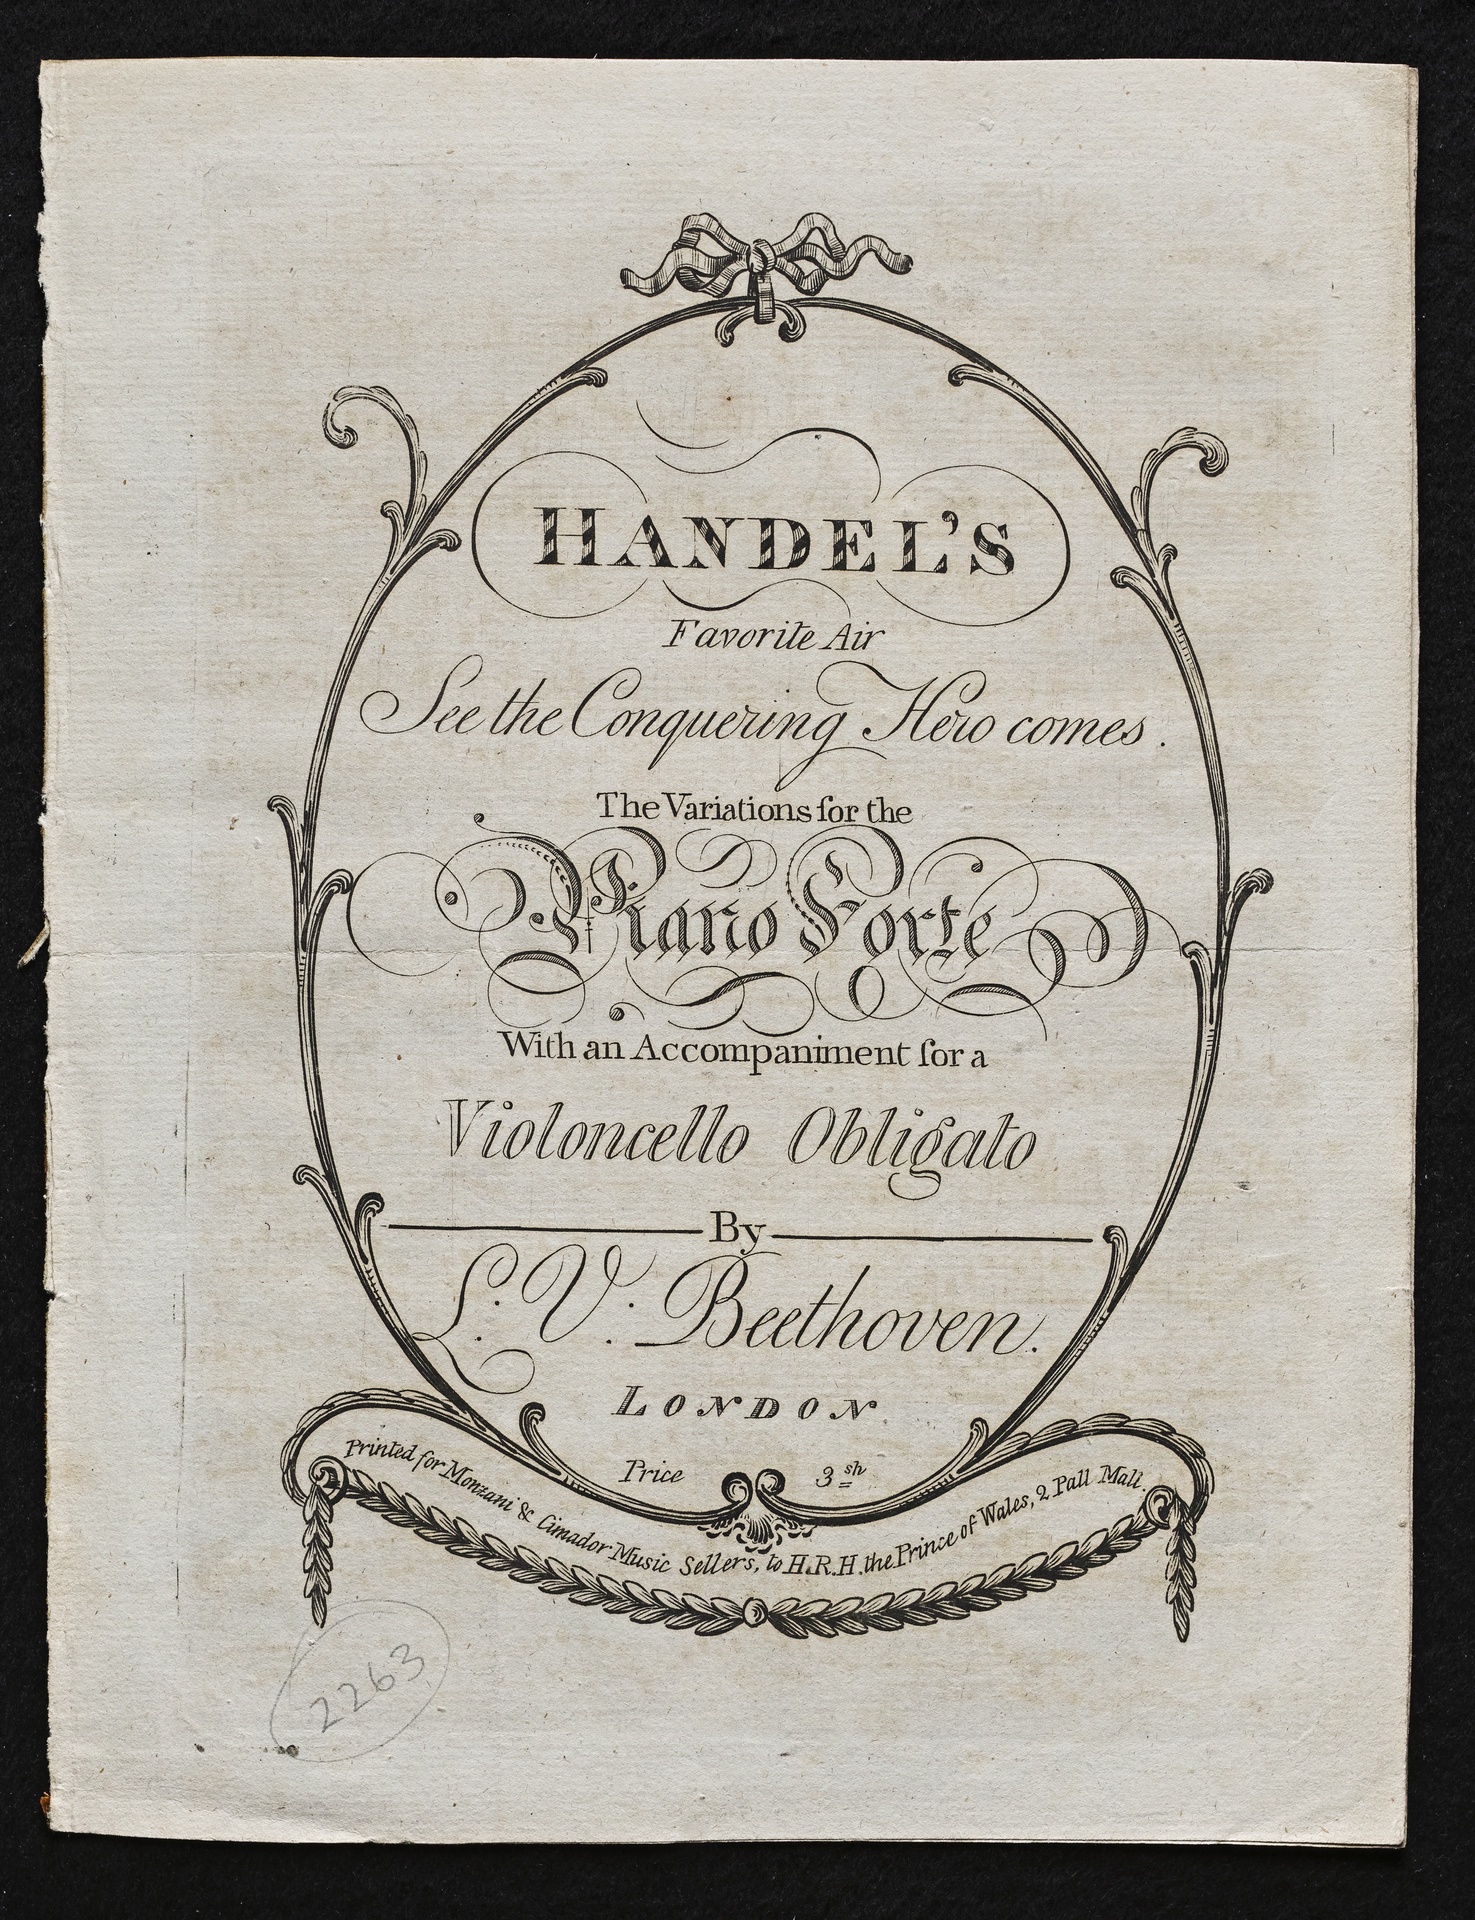 HANDEL'S
Favorite Air
See the Conquering Hero comes.
The Variations for the
Piano Forte
With an Accompaniment for a
Violoncello Obligato
By
L. V. Beethoven.
LONDON
Price 3 sh
Printed for Monzani & Cimador Music Sellers, to H.R.H. the Prince of Wales, 2 Pall Mall.
2263